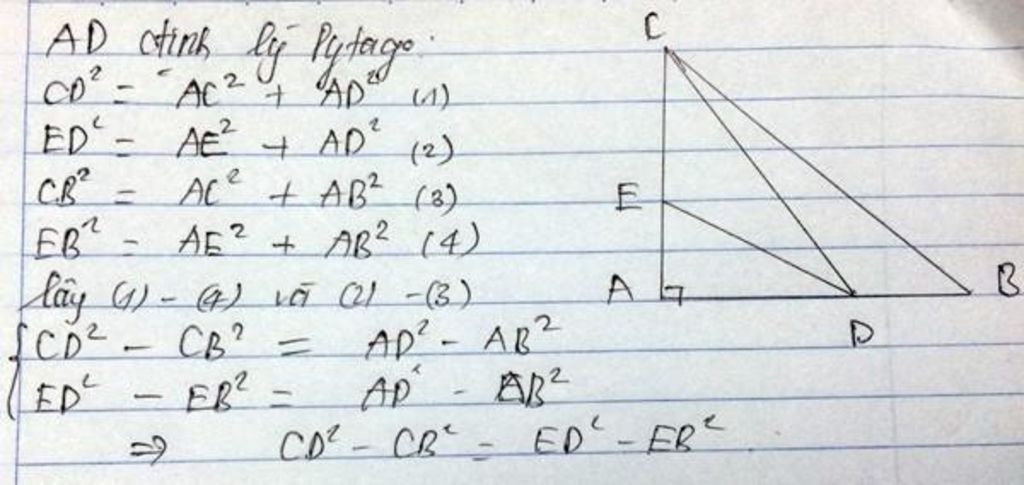 AD định lý Pytago.
CD² = AC² + AD² (1)
ED² = AE² + AD² (2)
CB² = AC² + AB² (3)
EB² = AE² + AB² (4)
lấy (1) - (4) và (2) - (3)
CD² - CB² = AD² - AB²
ED² - EB² = AD² - AB²
⇒ CD² - CB² = ED² - EB²
C
E
A
B
D